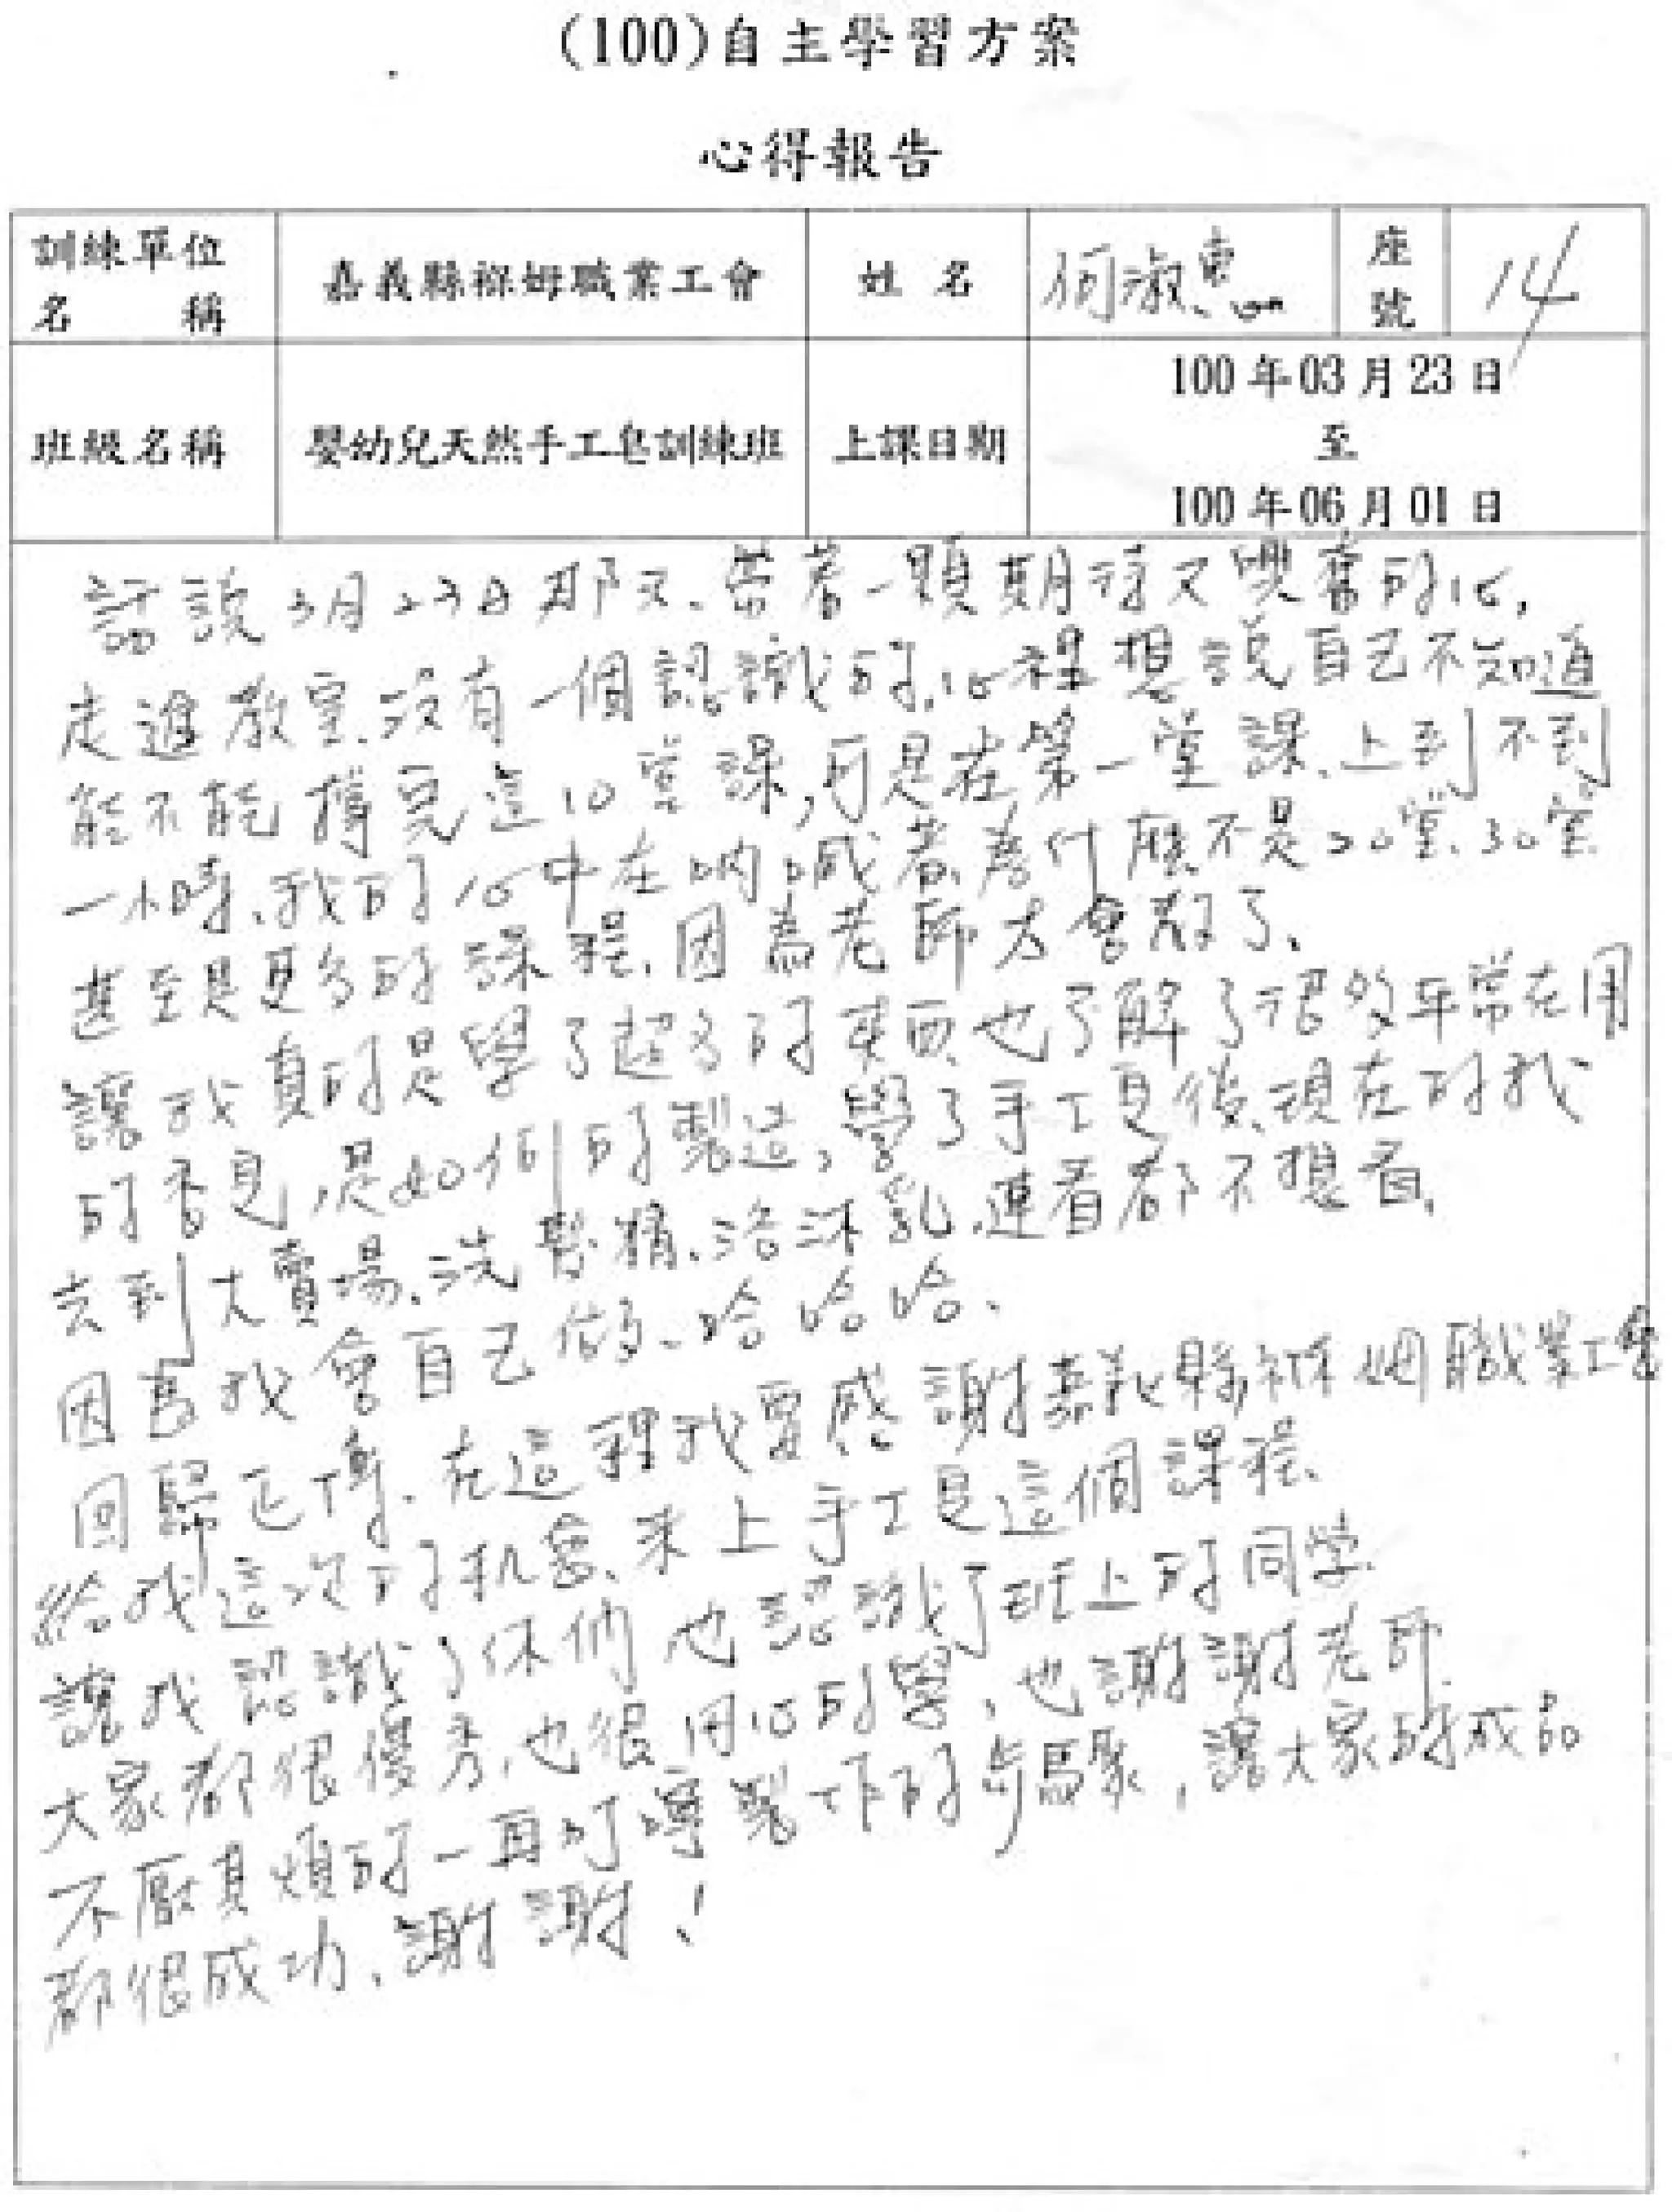 (100)自主學習方案
心得報告
訓練單位
名稱
嘉義縣褓姆職業工會
姓名
何淑惠
座號
14
班級名稱
嬰幼兒天然手工皂訓練班
上課日期
100年03月23日
至
100年06月01日
話說3月23日那天、帶著一顆期待又興奮的心,
走進教室、沒有一個認識的,心裡想說自己不知道
能不能撐完這10堂課,可是在第一堂課、上到不到
一小時、我的心中在吶喊著、為什麼不是20堂、30堂
甚至是更多的課程、因為老師太會教了、
讓我真的是學了超多的東西、也了解了現今平常在用
的香皂,是如何的製造,學了手工皂後、現在的我
去到大賣場、洗髮精、沐浴乳、連看都不想看,
因為我會自己做了、哈哈哈、
回歸正傳、在這裡我要感謝嘉義縣褓姆職業工會
給我這次的机會、來上手工皂這個課程、
讓我認識了你們也認識了班上的同學、
大家都很優秀,也很用心的學,也謝謝老師
不厭其煩的一再叮嚀製作的步驟,讓大家的成品
都很成功、謝謝!